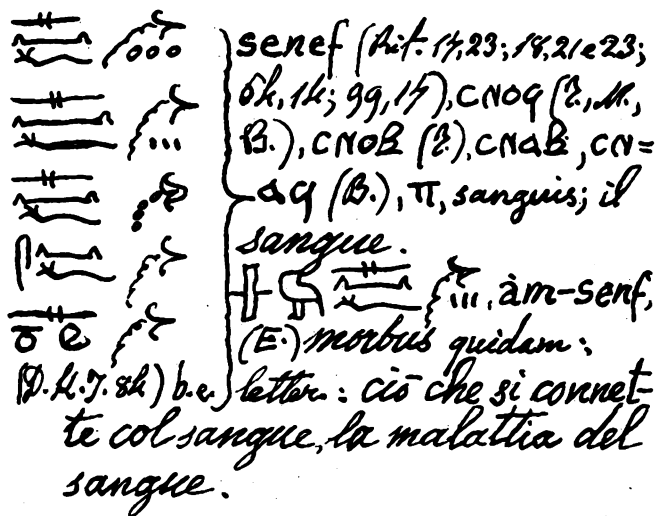 senef (Rit. 17,23; 18,21 e 23;
64,14; 99,17), ⲥⲛⲟϥ (T., M.,
B.), ⲥⲛⲟⲃ (T.), ⲥⲛⲁⲃ, ⲥⲛ=
ⲁϥ (B.), π, sanguis; il
sangue.
àm-senf,
(E.) morbus quidam:
(D.H.J. 84) b.e. letter.: ciò che si connet-
te col sangue, la malattia del
sangue.